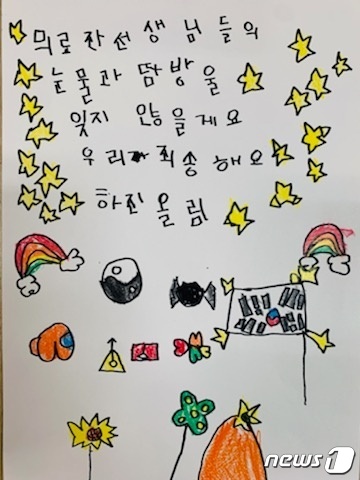 믜료잔선생님들의
눈물과땀방울
잊지 않을게요
우리가죄송해요
하진올림
news1